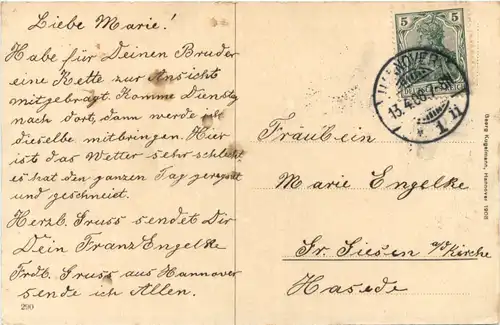 Liebe Marie!
Habe für Deinen Bruder
eine Kette zur Ansicht
mitgebragt. Komme Dienstag
nach dort, dann werde ich
dieselbe mitbringen. Hier
ist das Wetter sehr schlecht
es hat den ganzen Tag geregnet
und geschneiet.
Herzl. Gruss sendet Dir
Dein Franz Engelke
Frdl. Gruss aus Hannover
sende ich Allen.
290
5 5
HANNOVER
13.4.08.7-8N
* 1. 1i
Fräulein
Marie Engelke
Gr. Giesen a/d Kirche
Hasede
Georg Kugelmann, Hannover 1908